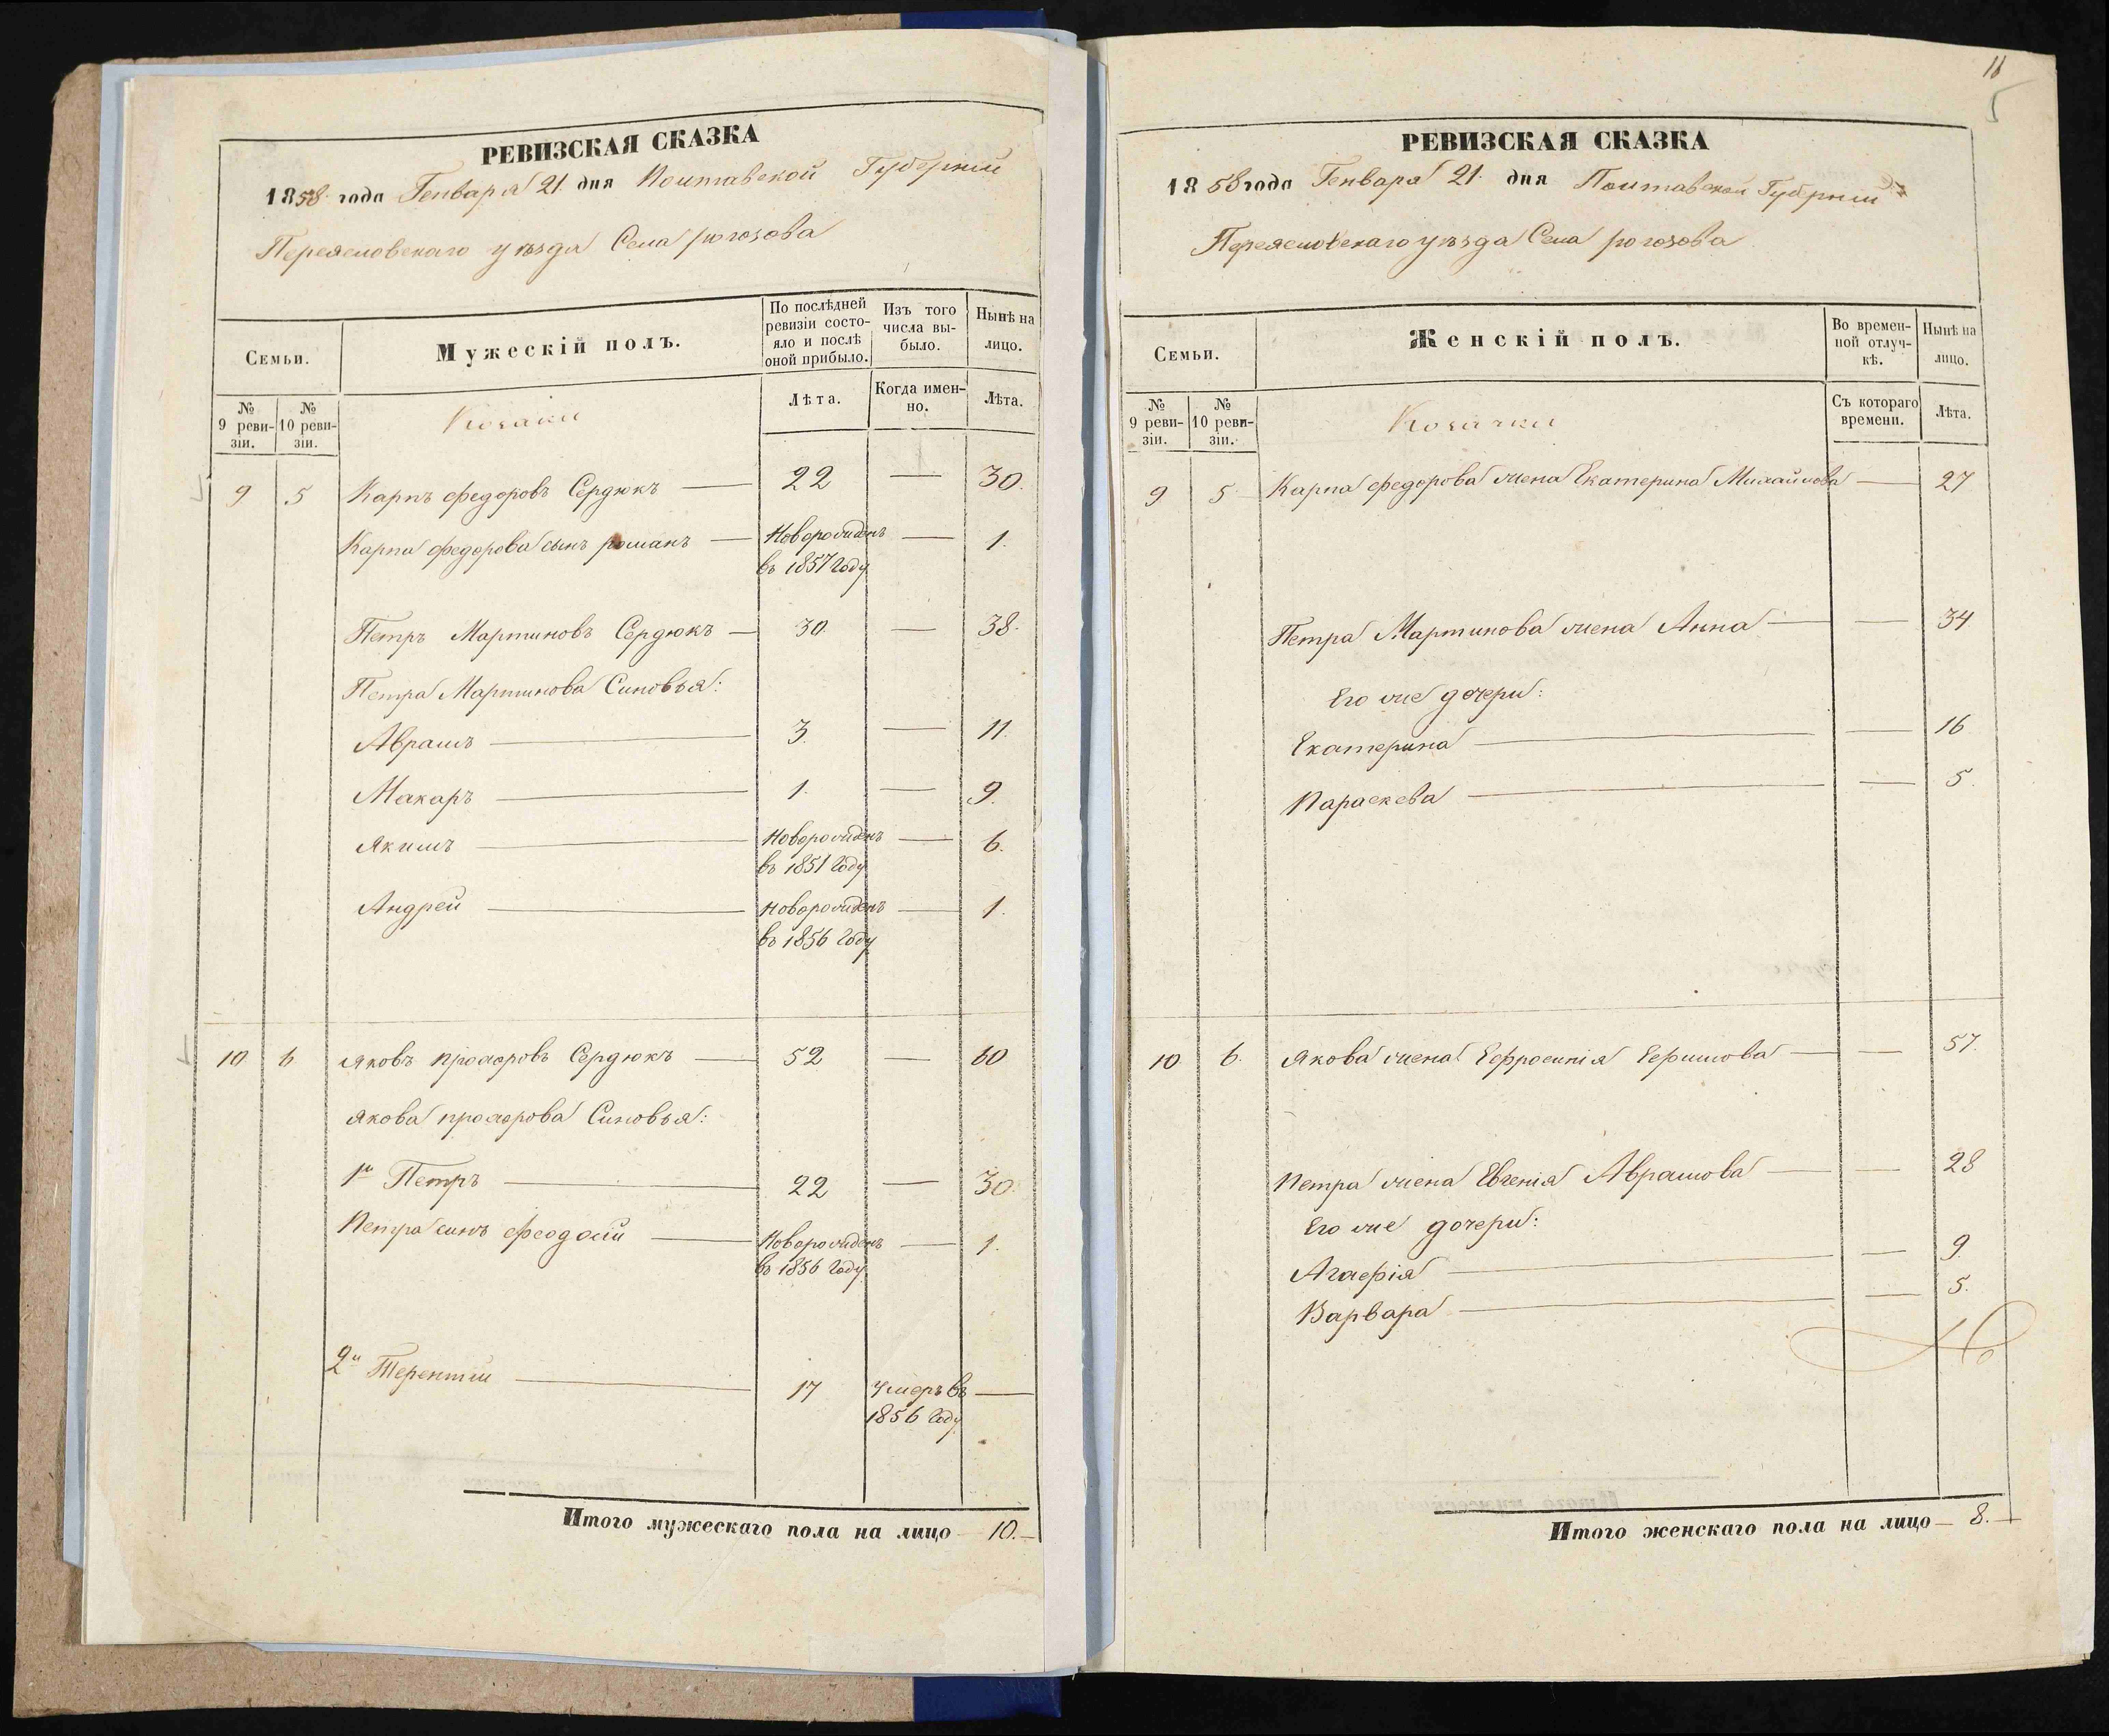 РЕВИЗСКАЯ СКАЗКА
1858 года Генваря 21 дня Полтавской Губерніи
Переясловскаго уѣзда Села рогозова
Семьи.
Мужескій полъ.
По послѣдней ревизіи состояло и послѣ оной прибыло.
Изъ того числа выбыло.
Нынѣ на лицо.
№ 9 ревизіи.
№ 10 ревизіи.
Козаки
Лѣта.
Когда именно.
Лѣта.
9 5 Карпъ федоровъ Сердюкъ — 22 — 30.
Карпа федорова сынъ романъ — Новорожденъ — 1.
въ 1857 Году
Петръ Мартиновъ Сердюкъ — 30. — 38.
Петра Мартинова Синовья:
Аврамъ — 3. — 11.
Макаръ — 1. — 9.
Якимъ — Новорожденъ — 6.
въ 1851 Году
Андрей — Новорожденъ — 1.
въ 1856 Году
10 6 Яковъ прохоровъ Сердюкъ — 52 — 60
Якова прохорова Синовья:
1й Петръ — 22 — 30.
Петра синъ Феодосій — Новорожденъ — 1.
въ 1856 Году
2й Терентій — 17 Умеръ въ —
1856 Году
Итого мужескаго пола на лицо — 10.—
11
5
РЕВИЗСКАЯ СКАЗКА
1858 года Генваря 21. дня Полтавской Губерніи
Переясловскаго уѣзда Села рогозова
Семьи.
Женскій полъ.
Во временной отлучкѣ.
Нынѣ на лицо.
№ 9 ревизіи.
№ 10 ревизіи.
Козачки
Съ котораго времени.
Лѣта.
9 5 Карпа федорова жена Екатерина Михайлова — 27
Петра Мартинова жена Анна — — 34
Его же дочери:
Екатерина — — 16
Параскева — — 5.
10 6. Якова жена Ефросинія Ефимова — — 57.
Петра жена Евгенія Аврамова — — 28
Его же дочери:
Агафія — — 9
Варвара — — 5.
Итого женскаго пола на лицо — 8.—